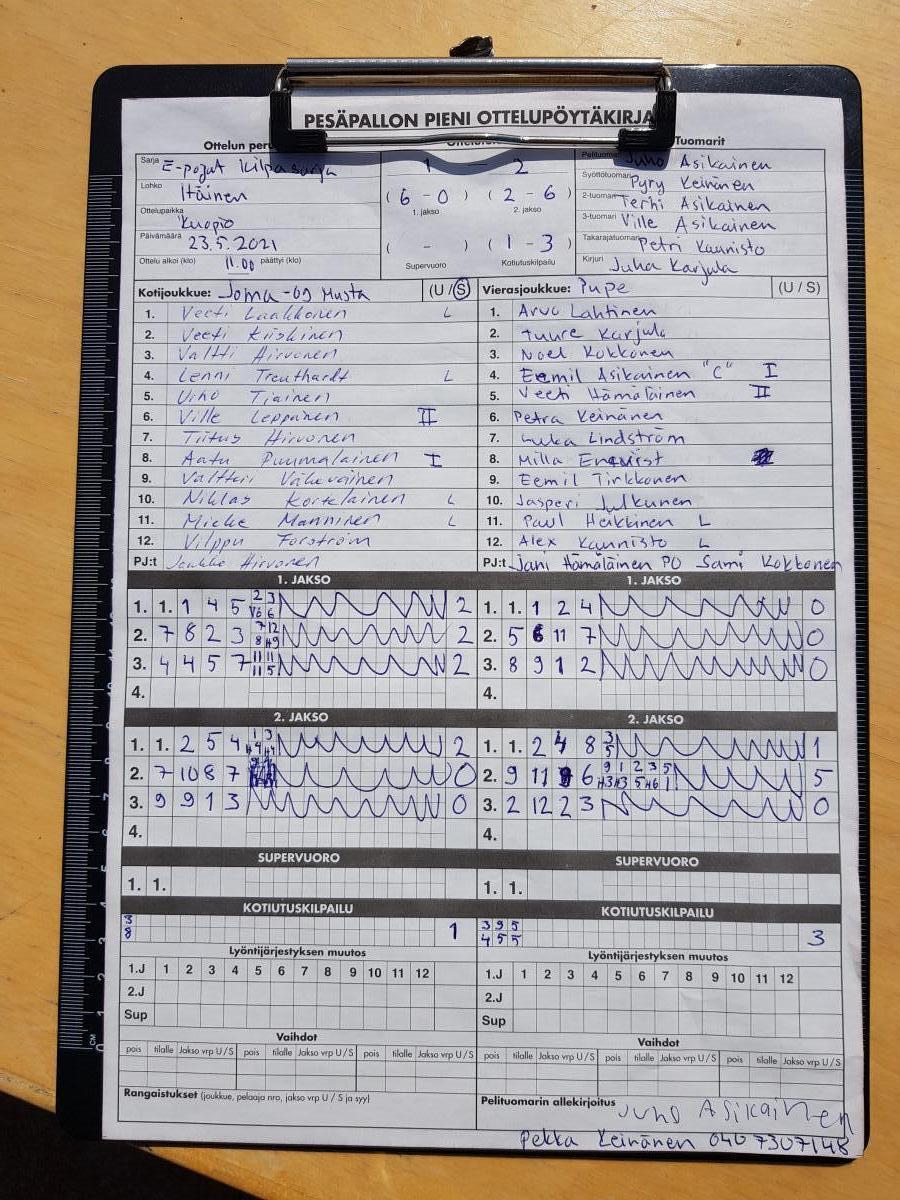 PESÄPALLON PIENI OTTELUPÖYTÄKIRJA
Ottelun peru
Tuomarit
Sarja E-pojat kilpasarja
Lohko Itäinen
Ottelupaikka Kuopio
Päivämäärä 23.5.2021
Ottelu alkoi (klo) 11.00 päättyi (klo)
1 - 2
( 6 - 0 ) ( 2 - 6 )
1. jakso 2. jakso
( - ) ( 1 - 3 )
Supervuoro Kotiutuskilpailu
Pelituomari Juho Asikainen
Syöttötuomari Pyry Keinänen
2-tuomari Terhi Asikainen
3-tuomari Ville Asikainen
Takarajatuomari Petri Kaunisto
Kirjuri Juha Karjula
Kotijoukkue: Joma-09 Musta (U / S)
1. Veeti Laakkonen L
2. Veeti Kiiskinen
3. Valtti Hirvonen
4. Lenni Treuthardt L
5. Urho Tiainen
6. Ville Leppänen II
7. Tiitus Hirvonen
8. Aatu Puumalainen I
9. Valtteri Väkeväinen
10. Niklas Kortelainen L
11. Micke Manninen L
12. Vilppu Forsström
PJ:t Jaakko Hirvonen
Vierasjoukkue: Pupe (U / S)
1. Arvo Lahtinen
2. Tuure Karjula
3. Noel Kokkonen
4. Eemil Asikainen "C" I
5. Veeti Hämäläinen II
6. Petra Keinänen
7. Luka Lindström
8. Milla Enqvist
9. Eemil Tirkkonen
10. Jasperi Julkunen
11. Paul Heikkinen L
12. Alex Kaunisto L
PJ:t Jani Hämäläinen PO Sami Kokkonen
1. JAKSO
1. 1. 1 4 5 2 3 2
V6 6
2. 7 8 2 3 7 12 2
8 H9
3. 4 4 5 7 11 11 2
11 5
4.
1. JAKSO
1. 1. 1 2 4 0
2. 5 6 11 7 0
3. 8 9 1 2 0
4.
2. JAKSO
1. 1. 2 5 4 1 3 2
H4 H4
2. 7 10 8 7 0
3. 9 9 1 3 0
4.
2. JAKSO
1. 1. 2 4 8 3 1
5
2. 9 11 6 9 1 2 3 5 5
H3 H3 5 H6 1
3. 2 12 2 3 0
4.
SUPERVUORO
1. 1.
SUPERVUORO
1. 1.
KOTIUTUSKILPAILU
3 1
8
KOTIUTUSKILPAILU
3 9 5 3
4 5 5
Lyöntijärjestyksen muutos
1.J 1 2 3 4 5 6 7 8 9 10 11 12
2.J
Sup
Lyöntijärjestyksen muutos
1.J 1 2 3 4 5 6 7 8 9 10 11 12
2.J
Sup
Vaihdot
pois tilalle Jakso vrp U / S pois tilalle Jakso vrp U / S pois tilalle Jakso vrp U / S
Vaihdot
pois tilalle Jakso vrp U / S pois tilalle Jakso vrp U / S pois tilalle Jakso vrp U / S
Rangaistukset (joukkue, pelaaja nro, jakso vrp U / S ja syy)
Pelituomarin allekirjoitus Juho Asikainen
Pekka Keinänen 040 7307148